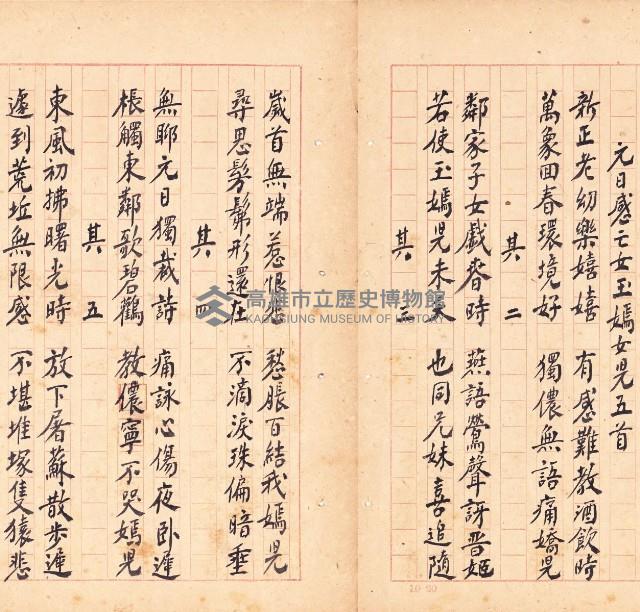 元日感亡女玉嫣女兒五首
新正老幼樂嬉嬉 有感難教酒飲時
萬象回春環境好 獨儂無語痛嬌兒
其二
鄰家子女戲春時 燕語鶯聲訝晋姬
若使玉嫣兒未夭 也同兄妹喜追隨
其三
歲首無端惹恨悲 愁腸百結我嫣兒
尋思髣髴形還在 不滴淚珠偏暗垂
其四
無聊元日獨裁詩 痛詠心傷夜卧遲
棖觸東鄰歌碧鸛 教儂寧不哭嫣兒
其五
東風初拂曙光時 放下屠蘇散步遲
遽到荒坵無限感 不堪堆塚隻猿悲
高雄市立歷史博物館
KAOHSIUNG MUSEUM OF HISTORY